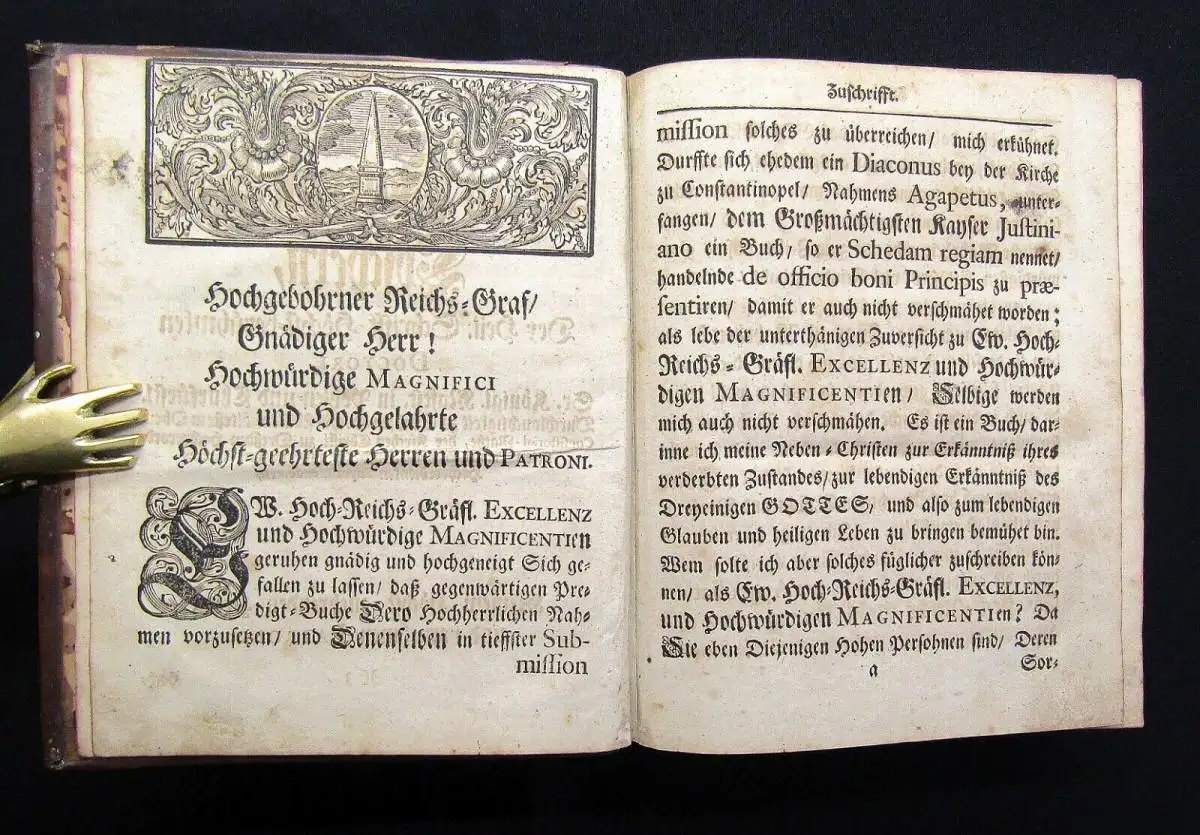 Hochgebohrner Reichs-Graf/
Gnädiger Herr!
Hochwürdige MAGNIFICI
und Hochgelahrte
Höchst-geehrteste Herren und PATRONI.
EW. Hoch-Reichs-Gräfl. EXCELLENZ
und Hochwürdige MAGNIFICENTIen
geruhen gnädig und hochgeneigt Sich ge-
fallen zu lassen/ daß gegenwärtigen Pre-
digt-Buche Dero Hochherrlichen Nah-
men vorzusetzen/ und Denenselben in tieffster Sub-
mission
Zuschrifft.
mission solches zu überreichen/ mich erkühnet.
Durffte sich ehedem ein Diaconus bey der Kirche
zu Constantinopel/ Nahmens Agapetus, unter-
fangen/ dem Großmächtigsten Kayser Justini-
ano ein Buch/ so er Schedam regiam nennet/
handelnde de officio boni Principis zu præ-
sentiren/ damit er auch nicht verschmähet worden;
als lebe der unterthänigen Zuversicht zu Ew. Hoch-
Reichs-Gräfl. EXCELLENZ und Hochwür-
digen MAGNIFICENTIen/ Selbige werden
mich auch nicht verschmähen. Es ist ein Buch/ dar-
inne ich meine Neben-Christen zur Erkänntniß ihres
verderbten Zustandes/ zur lebendigen Erkänntniß des
Dreyeinigen GOTTES/ und also zum lebendigen
Glauben und heiligen Leben zu bringen bemühet bin.
Wem solte ich aber solches füglicher zuschreiben kön-
nen/ als Ew. Hoch-Reichs-Gräfl. EXCELLENZ,
und Hochwürdigen MAGNIFICENTIen? Da
Sie eben Diejenigen Hohen Persohnen sind/ Deren
a
Sor-